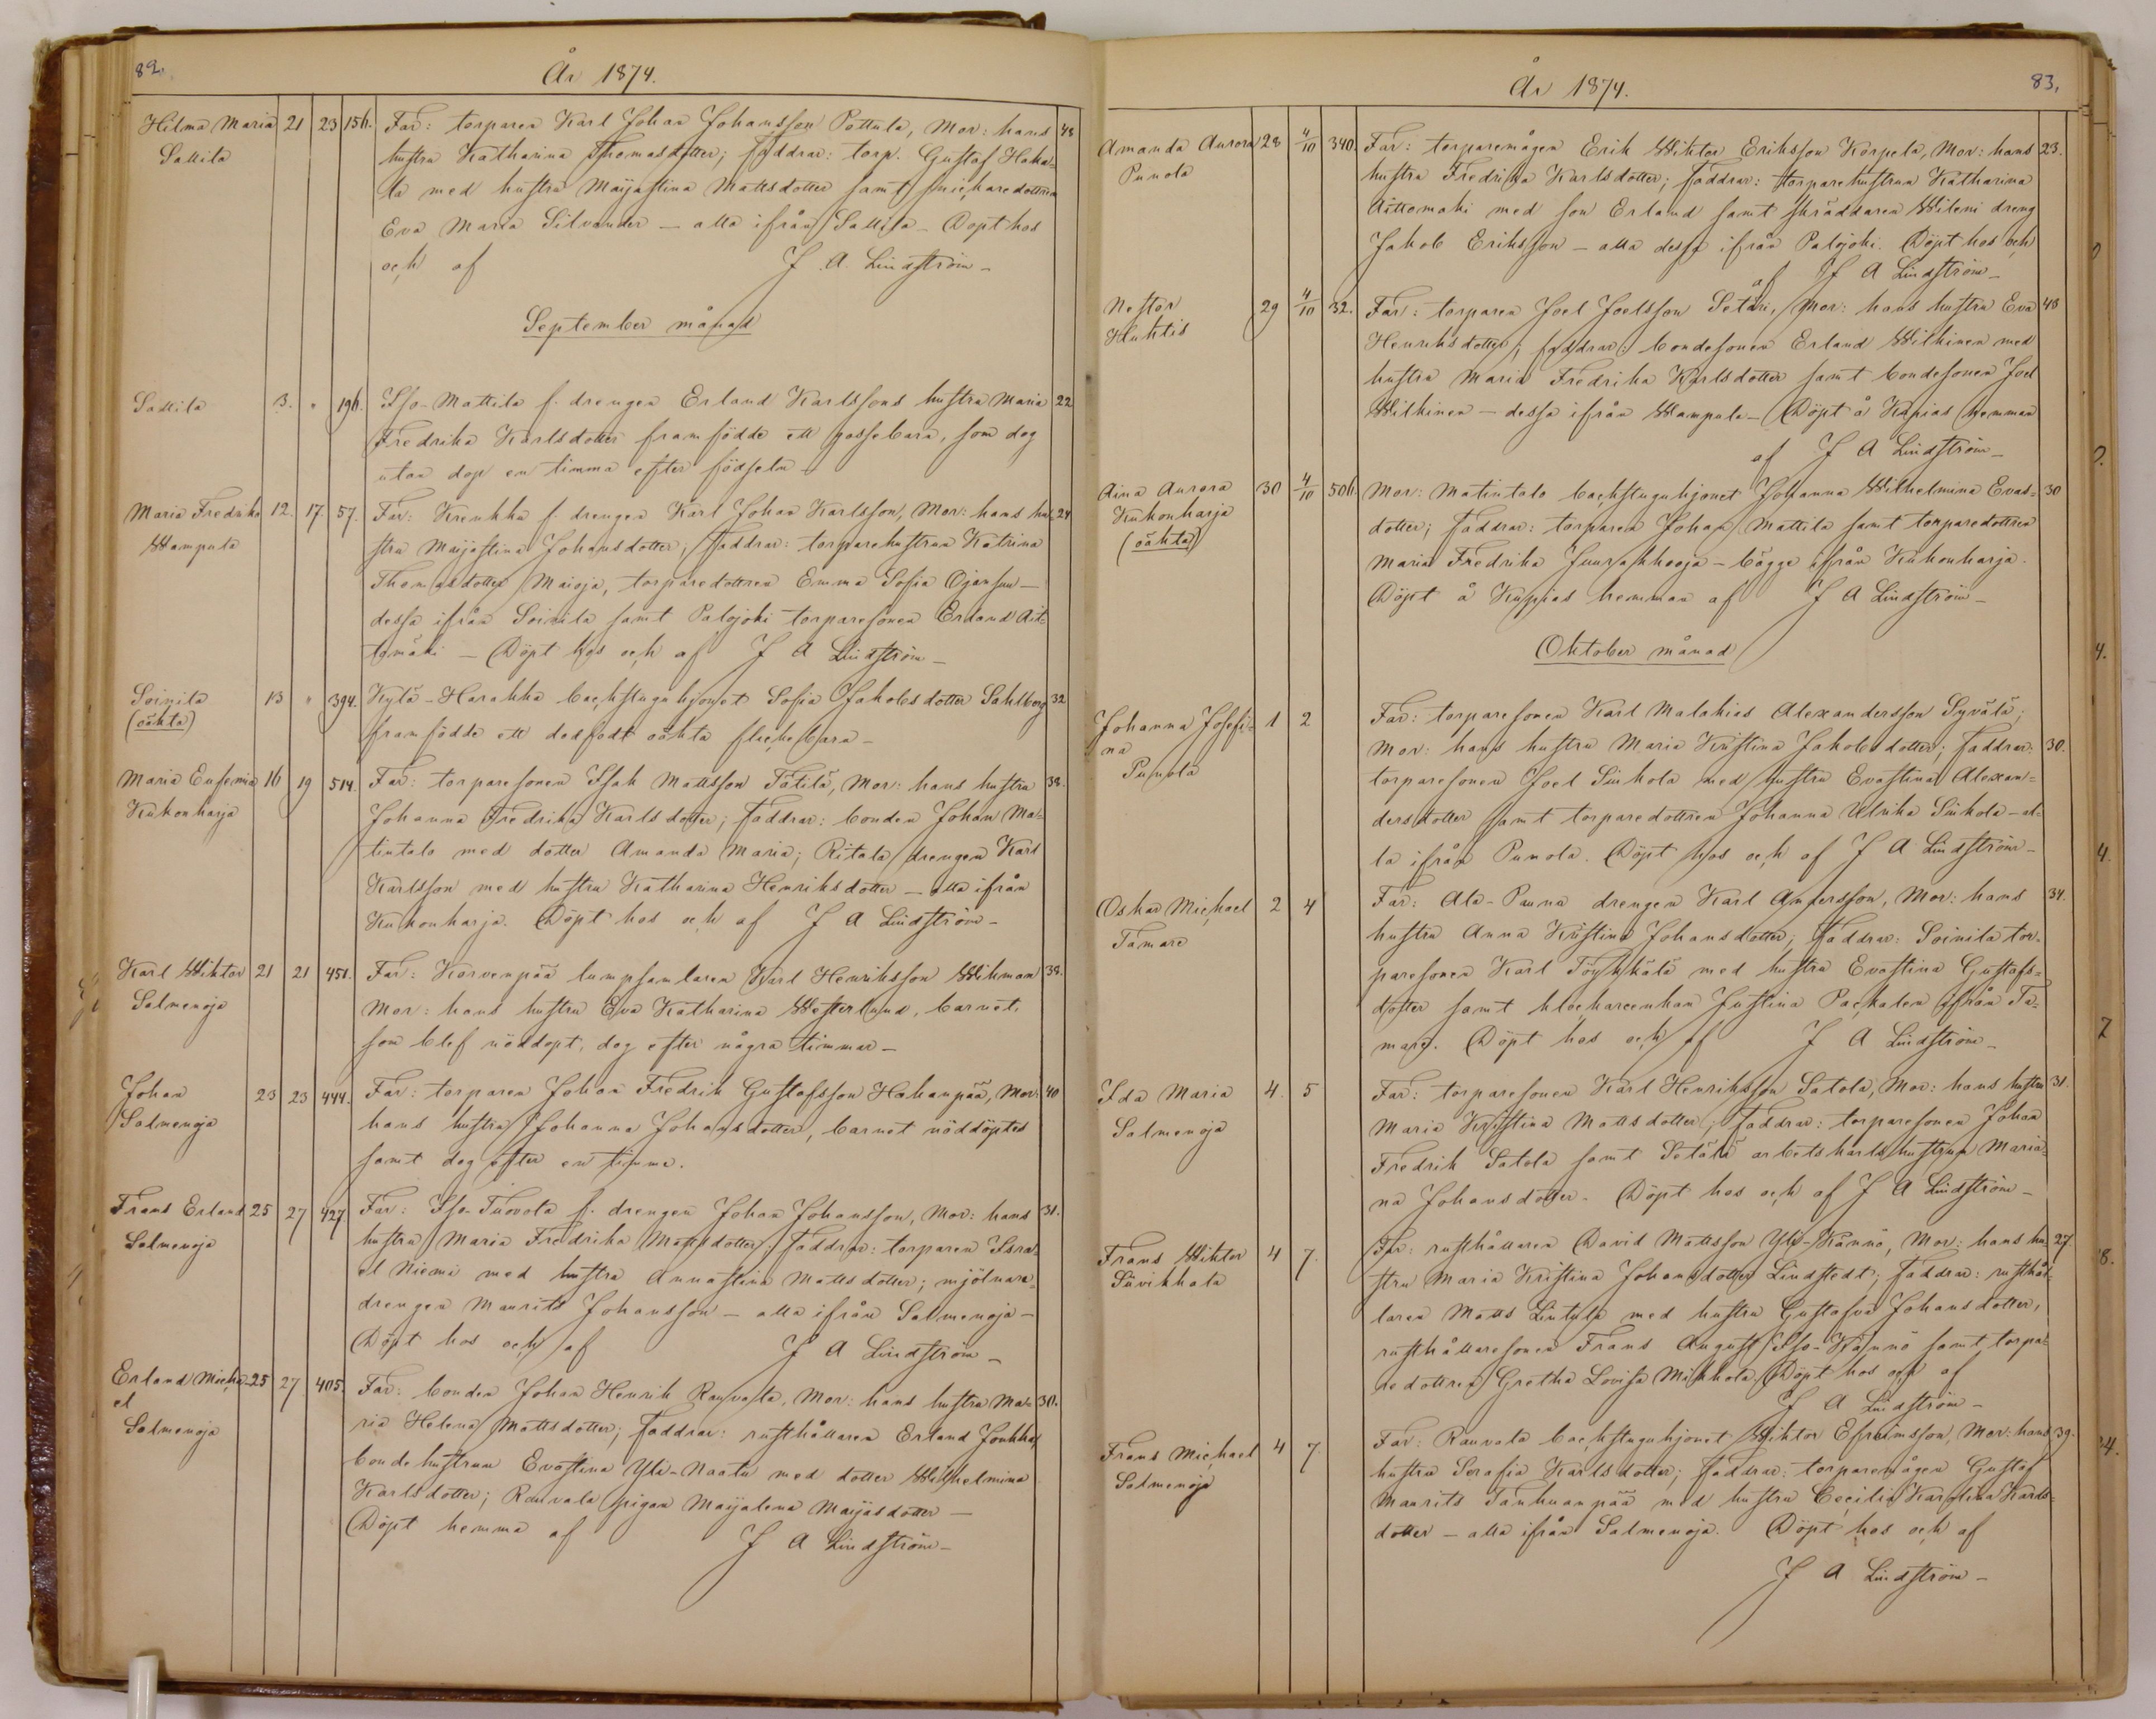 82.
År 1874.
Hilma Maria 21 23 156. Far: torparen Karl Johan Johansson Pottula, Mor: hans 48
Sallila hustru Katharina Thomasdotter; faddrar: torp. Gustaf Haka-
la med hustru Maijastina Mattsdotter samt snickaredottren
Eva Maria Silvander — alla ifrån Sallila — Döpt hos
och af J. A. Lindström —
September månad
Sallila 3. " 196. Iso-Mattila f. drengen Erland Karlssons hustru Maria 22
Fredrika Karlsdotter framfödde ett gossebarn, som dog
utan dop en timma efter födseln —
Maria Fredrika 12. 17. 57. Far: Krenkka f. drengen Karl Johan Karlsson, Mor: hans hu- 24
Wampula stru Maijastina Johansdotter; faddrar: torparehustrun Katrina
Thomasdotter Maioja, torparedottren Emma Sofia Ojansuu —
dessa ifrån Soinila samt Palojoki torparesonen Erland Äit-
tomäki — Döpt hos och af J A Lindström —
Soinila 13 " 394. Kylä-Harakka backstuguhjonet Sofia Jakobsdotter Sahlberg 32
(oäkta) framfödde ett dödfödt oäkta flickebarn —
Maria Eufemia 16 19 514. Far: torparesonen Isak Mattsson Tätilä, Mor: hans hustru 38.
Kukonharja Johanna Fredrika Karlsdotter; faddrar: bonden Johan Ma-
tintalo med dotter Amanda Maria; Ritala drengen Karl
Karlsson med hustru Katharina Henriksdotter — alla ifrån
Kukonharja. Döpt hos och af J A Lindström —
Karl Wiktor 21 21 451. Far: Korvenpää lumpsamlaren Karl Henriksson Wikman 38.
Salmenoja Mor: hans hustru Eva Katharina Westerlund, barnet,
som blef nöddöpt, dog efter några timmar —
Johan 23 23 444. Far: torparen Johan Fredrik Gustafsson Hakanpää, Mor: 40
Salmenoja hans hustru Johanna Johansdotter, barnet nöddöptes
samt dog efter en timme.
Frans Erland 25 27 427 Far: Iso-Tuovola f. drengen Johan Johansson, Mor: hans 31.
Salmenoja hustru Maria Fredrika Mattsdotter; faddrar: torparen Isra-
el Niemi med hustru Annastina Mattsdotter; mjölnare-
drengen Maurits Johansson — alla ifrån Salmenoja —
Döpt hos och af J A Lindström —
Erland Micha- 25 27 405. Far: bonden Johan Henrik Rauvala, Mor: hans hustru Ma- 30.
el ria Helena Mattsdotter; faddrar: rusthållaren Erland Jonkka,
Salmenoja bondehustrun Evastina Yli-Naatu med dotter Wilhelmina
Karlsdotter; Rauvala pigan Maijalena Maijasdotter —
Döpt hemma af J A Lindström —
83.
År 1874.
Amanda Aurora 28 4/10 340. Far: torparemågen Erik Wiktor Eriksson Korpela, Mor: hans 23.
Punola hustru Fredrika Karlsdotter; faddrar: torparehustrun Katharina
Aittomäki med son Erland samt skräddaren Wileni dreng
Jakob Eriksson — alla dessa ifrån Palojoki. Döpt hos och
af J A Lindström —
Nestor 29 4/10 32. Far: torparen Joel Joelsson Setäri, Mor: hans hustru Eva 48
Huhtis Henriksdotter; faddrar: bondesonen Erland Wilkinen med
hustru Maria Fredrika Karlsdotter samt bondesonen Joel
Wilkinen — dessa ifrån Wampula — Döpt å Kupias hemman
af J A Lindström —
Aina Aurora 30 4/10 506. Mor: Matintalo backstuguhjonet Johanna Wilhelmina Evas- 30
Kukonharja dotter; faddrar: torparen Johan Mattila samt torparedottren
(oäkta) Maria Fredrika Juurakkooja — bägge ifrån Kukonharja.
Döpt å Kupias hemman af J A Lindström —
Oktober månad
Johanna Josefi- 1 2 Far: torparesonen Karl Malakias Alexandersson Syvälä;
na Mor: hans hustru Maria Kristina Jakobsdotter; faddrar: 30.
Punola torparesonen Joel Sinkola med hustru Evastina Alexan-
dersdotter samt torparedottren Johanna Ulrika Sinkola — al-
la ifrån Punola. Döpt hos och af J A Lindström —
Oskar Michael 2 4 Far: Ala-Panna drengen Karl Andersson, Mor: hans 34.
Tamare hustru Anna Kristina Johansdotter; faddrar: Soinila tor-
paresonen Karl Töykkälä med hustru Evastina Gustafs-
dotter samt klockareenkan Justina Packalen ifrån Ta-
mare. Döpt hos och af J A Lindström —
Ida Maria 4. 5 Far: torparesonen Karl Henriksson Satola, Mor: hans hustru 31.
Salmenoja Maria Kristina Mattsdotter; faddrar: torparesonen Johan
Fredrik Satola samt Setälä arbetskarls hustrun Maria-
na Johansdotter — Döpt hos och af J A Lindström —
Frans Wiktor 4 7. Far: rusthållaren David Mattsson Yli-Kännö, Mor: hans hu- 27
Suvikkala stru Maria Kristina Johansdotter Lindstedt; faddrar: rusthål-
laren Matts Lintula med hustru Gustafva Johansdotter,
rusthållaresonen Frans August Iso-Kännö samt torpa-
redottren Gretha Lovisa Mikkola. Döpt hos och af
J A Lindström —
Frans Michael 4 7 Far: Rauvala backstuguhjonet Wiktor Efraimsson, Mor: hans 39.
Salmenoja hustru Serafia Karlsdotter; faddrar: torparemågen Gustaf
Maurits Tanhuanpää med hustru Cecilia Karolina Karls-
dotter — alla ifrån Salmenoja. Döpt hos och af
J A Lindström —